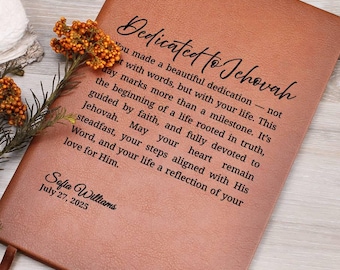 Dedicated to Jehovah
You made a beautiful dedication — not
with words, but with your life. This
day marks more than a milestone. It's
the beginning of a life rooted in truth,
guided by faith, and fully devoted to
Jehovah. May your heart remain
steadfast, your steps aligned with His
Word, and your life a reflection of your
love for Him.
Sofia Williams
July 27, 2025